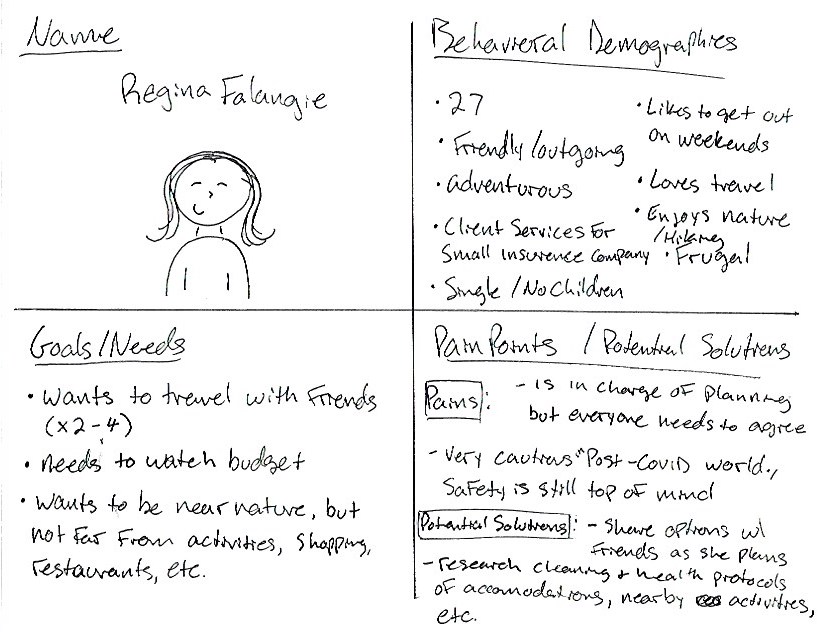 Name
Regina Falangie
Behavioral Demographics
• 27
• Friendly/outgoing
• adventurous
• Client Services for
Small Insurence Company
• Single/No Children
• Likes to get out
on weekends
• Loves travel
• Enjoys nature
/Hiking
• Frugal
Goals/Needs
• wants to travel with Friends
(x2-4)
• needs to watch budget
• wants to be near nature, but
not far from activities, shopping,
restaurants, etc.
Pain Points / Potential Solutions
Pains: - is in charge of planning
but everyone needs to agree
- Very cautious "Post-Covid world.,
Safety is still top of mind
Potential Solutions: - Share options w/
Friends as she plans
- research cleaning + health protocols
of accomodations, nearby activities,
etc.